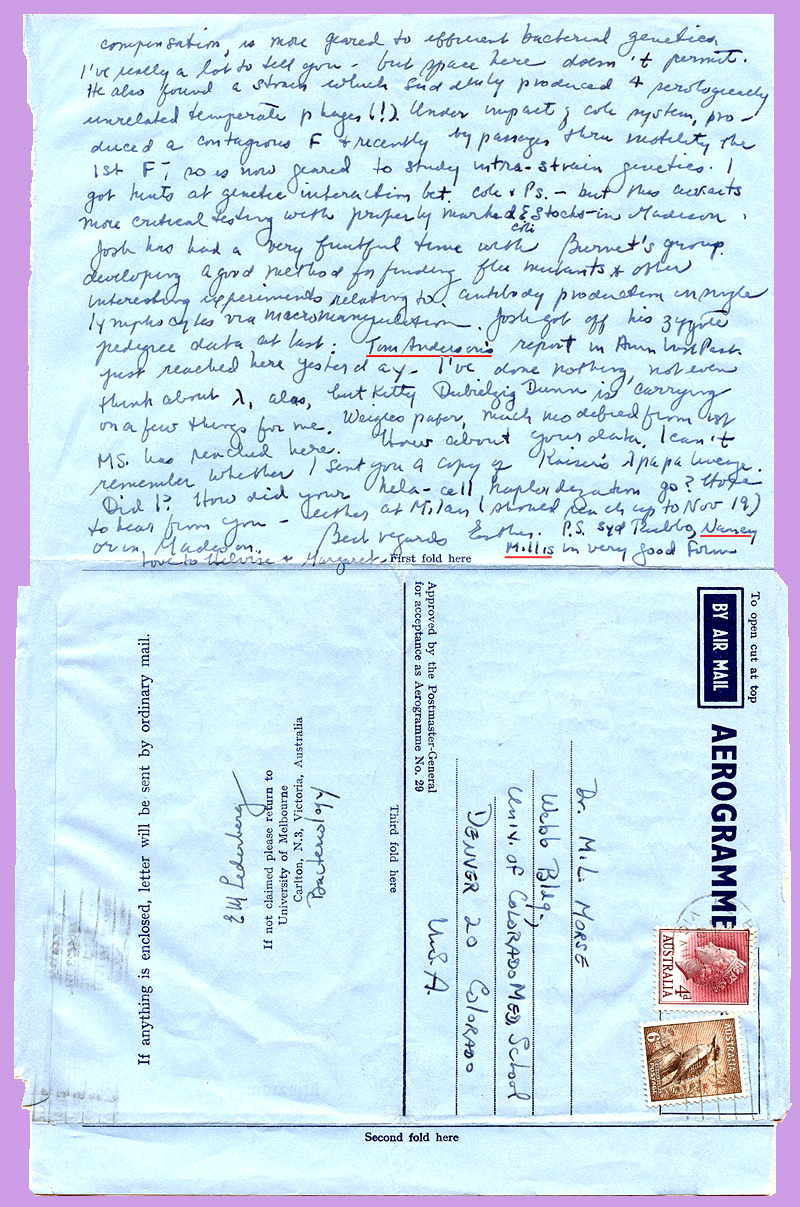 compensation, is more geared to efficient bacterial genetics.
I've really a lot to tell you - but space here doesn't permit.
He also found a strain which suddenly produced 4 serologically
unrelated temperate phages (!). Under impact of coli system, pro-
duced a contagious F + recently by passages thru motility the
1st F-, so is now geared to study intra-strain genetics. I
got hints at genetic interaction bet. coli + Ps. - but this awaits
more critical testing with properly marked stocks in Madison.
coli
Josh has had a very fruitful time with Burnet's group.
developing a good method for finding flu mutants & other
interesting experiments relating to antibody production in single
lymphocytes via macromanipulation. Josh got off his zygote
pedigree data at last. Tom Anderson's report in Ann Inst Past.
just reached here yesterday - I've done nothing, not even
think about λ, alas, but Kitty Dubielzig Dunn is carrying
on a few things for me. Weigles paper, much modefied from 1st
MS. has reached here. How about your data, I can't
remember whether I sent you a copy of Kaiser's λ papa
Did I? How did your hela-cell haploidization go? Hope
to hear from you - either at Milan (should reach up to Nov 19)
or in Madison. Best regards Esther. P.S. Syd Rubbo, Nancy
Millis in very good form
Love to + Margaret
First fold here
To open cut at top
BY AIR MAIL
AEROGRAMME
AUSTRALIA
4d
AUSTRALIA
6d
POSTAGE
Dr. M. L. MORSE
Webb Bldg.,
Univ. of COLORADO MED. School
DENVER 20 COLORADO
U.S.A.
Approved by the Postmaster-General
for acceptance as Aerogramme No. 29
Third fold here
If not claimed please return to
University of Melbourne
Carlton, N.3, Victoria, Australia
Bacteriology
EM Lederberg
If anything is enclosed, letter will be sent by ordinary mail.
Second fold here